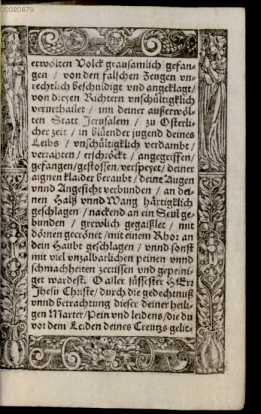 00020879
erwölten Volck grausamlich gefan-
gen / von den falschen Zeugen vn-
rechtlich beschuldigt vnd angeklagt /
von diezen Richtern vnschültigklich
vervrthailet / inn deiner außerwöl-
ten Statt Jerusalem / zu Osterli-
cher zeit / in blüender jugend deines
Leibs / vnschültigklich verdambt /
verrahten / erschröckt / angegriffen /
gefangen / gestossen / verspeyet / deiner
aignen klaider beraubt / deine Augen
vnnd Angesicht verbunden / an dei-
nen Halß vnnd Wang härtigklich
geschlagen / nackend an ein Seul ge-
bunden / grewlich gegaißlet / mit
dörnen gecrönet / mit einem Rhor an
dein Haubt geschlagen / vnnd sonst
mit viel vnzalbarlichen peinen vnnd
schmachheiten zerrissen vnd gepeini-
get wardest. O aller süssester HErr
Jhesu Christe / durch die gedechtnuß
vnnd betrachtung dieser deiner heili-
gen Marter / Pein vnd leidens / die du
vor dem Leiden deines Creutzs gelit-